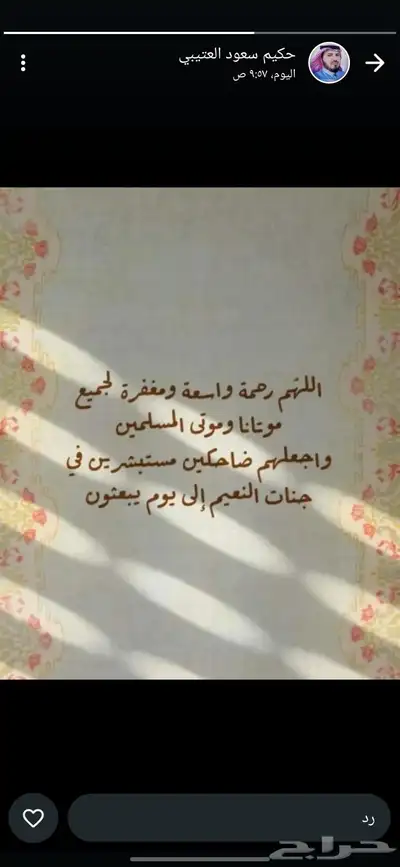 حكيم سعود العتيبي
اليوم، ٩:٥٧ ص
اللهم رحمة واسعة ومغفرة لجميع
موتانا وموتى المسلمين
واجعلهم ضاحكين مستبشرين في
جنات النعيم إلى يوم يبعثون
رد
حراج